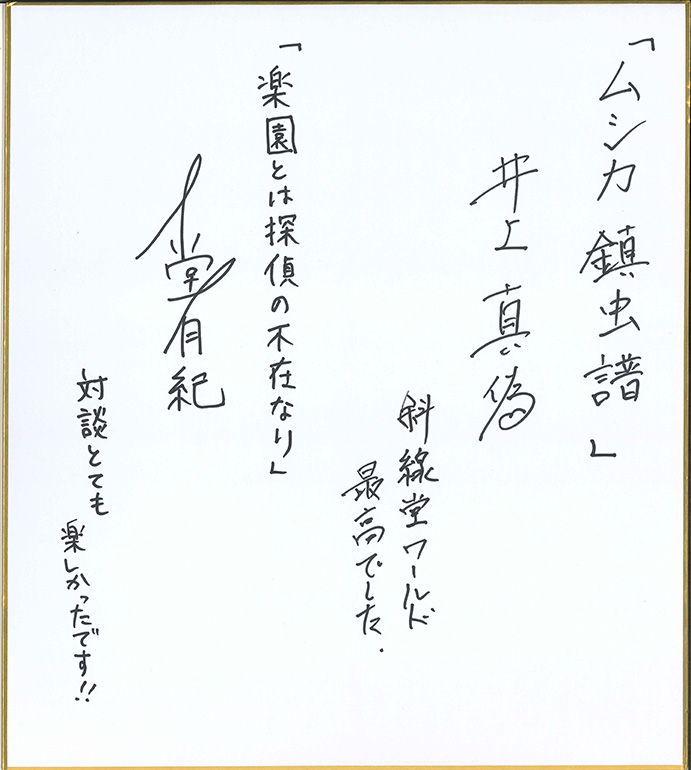 「ムシカ 鎮虫譜」
井上真偽
斜線堂ワールド
最高でした.
「楽園とは探偵の不在なり」
堂有紀
対談とても
楽しかったです!!